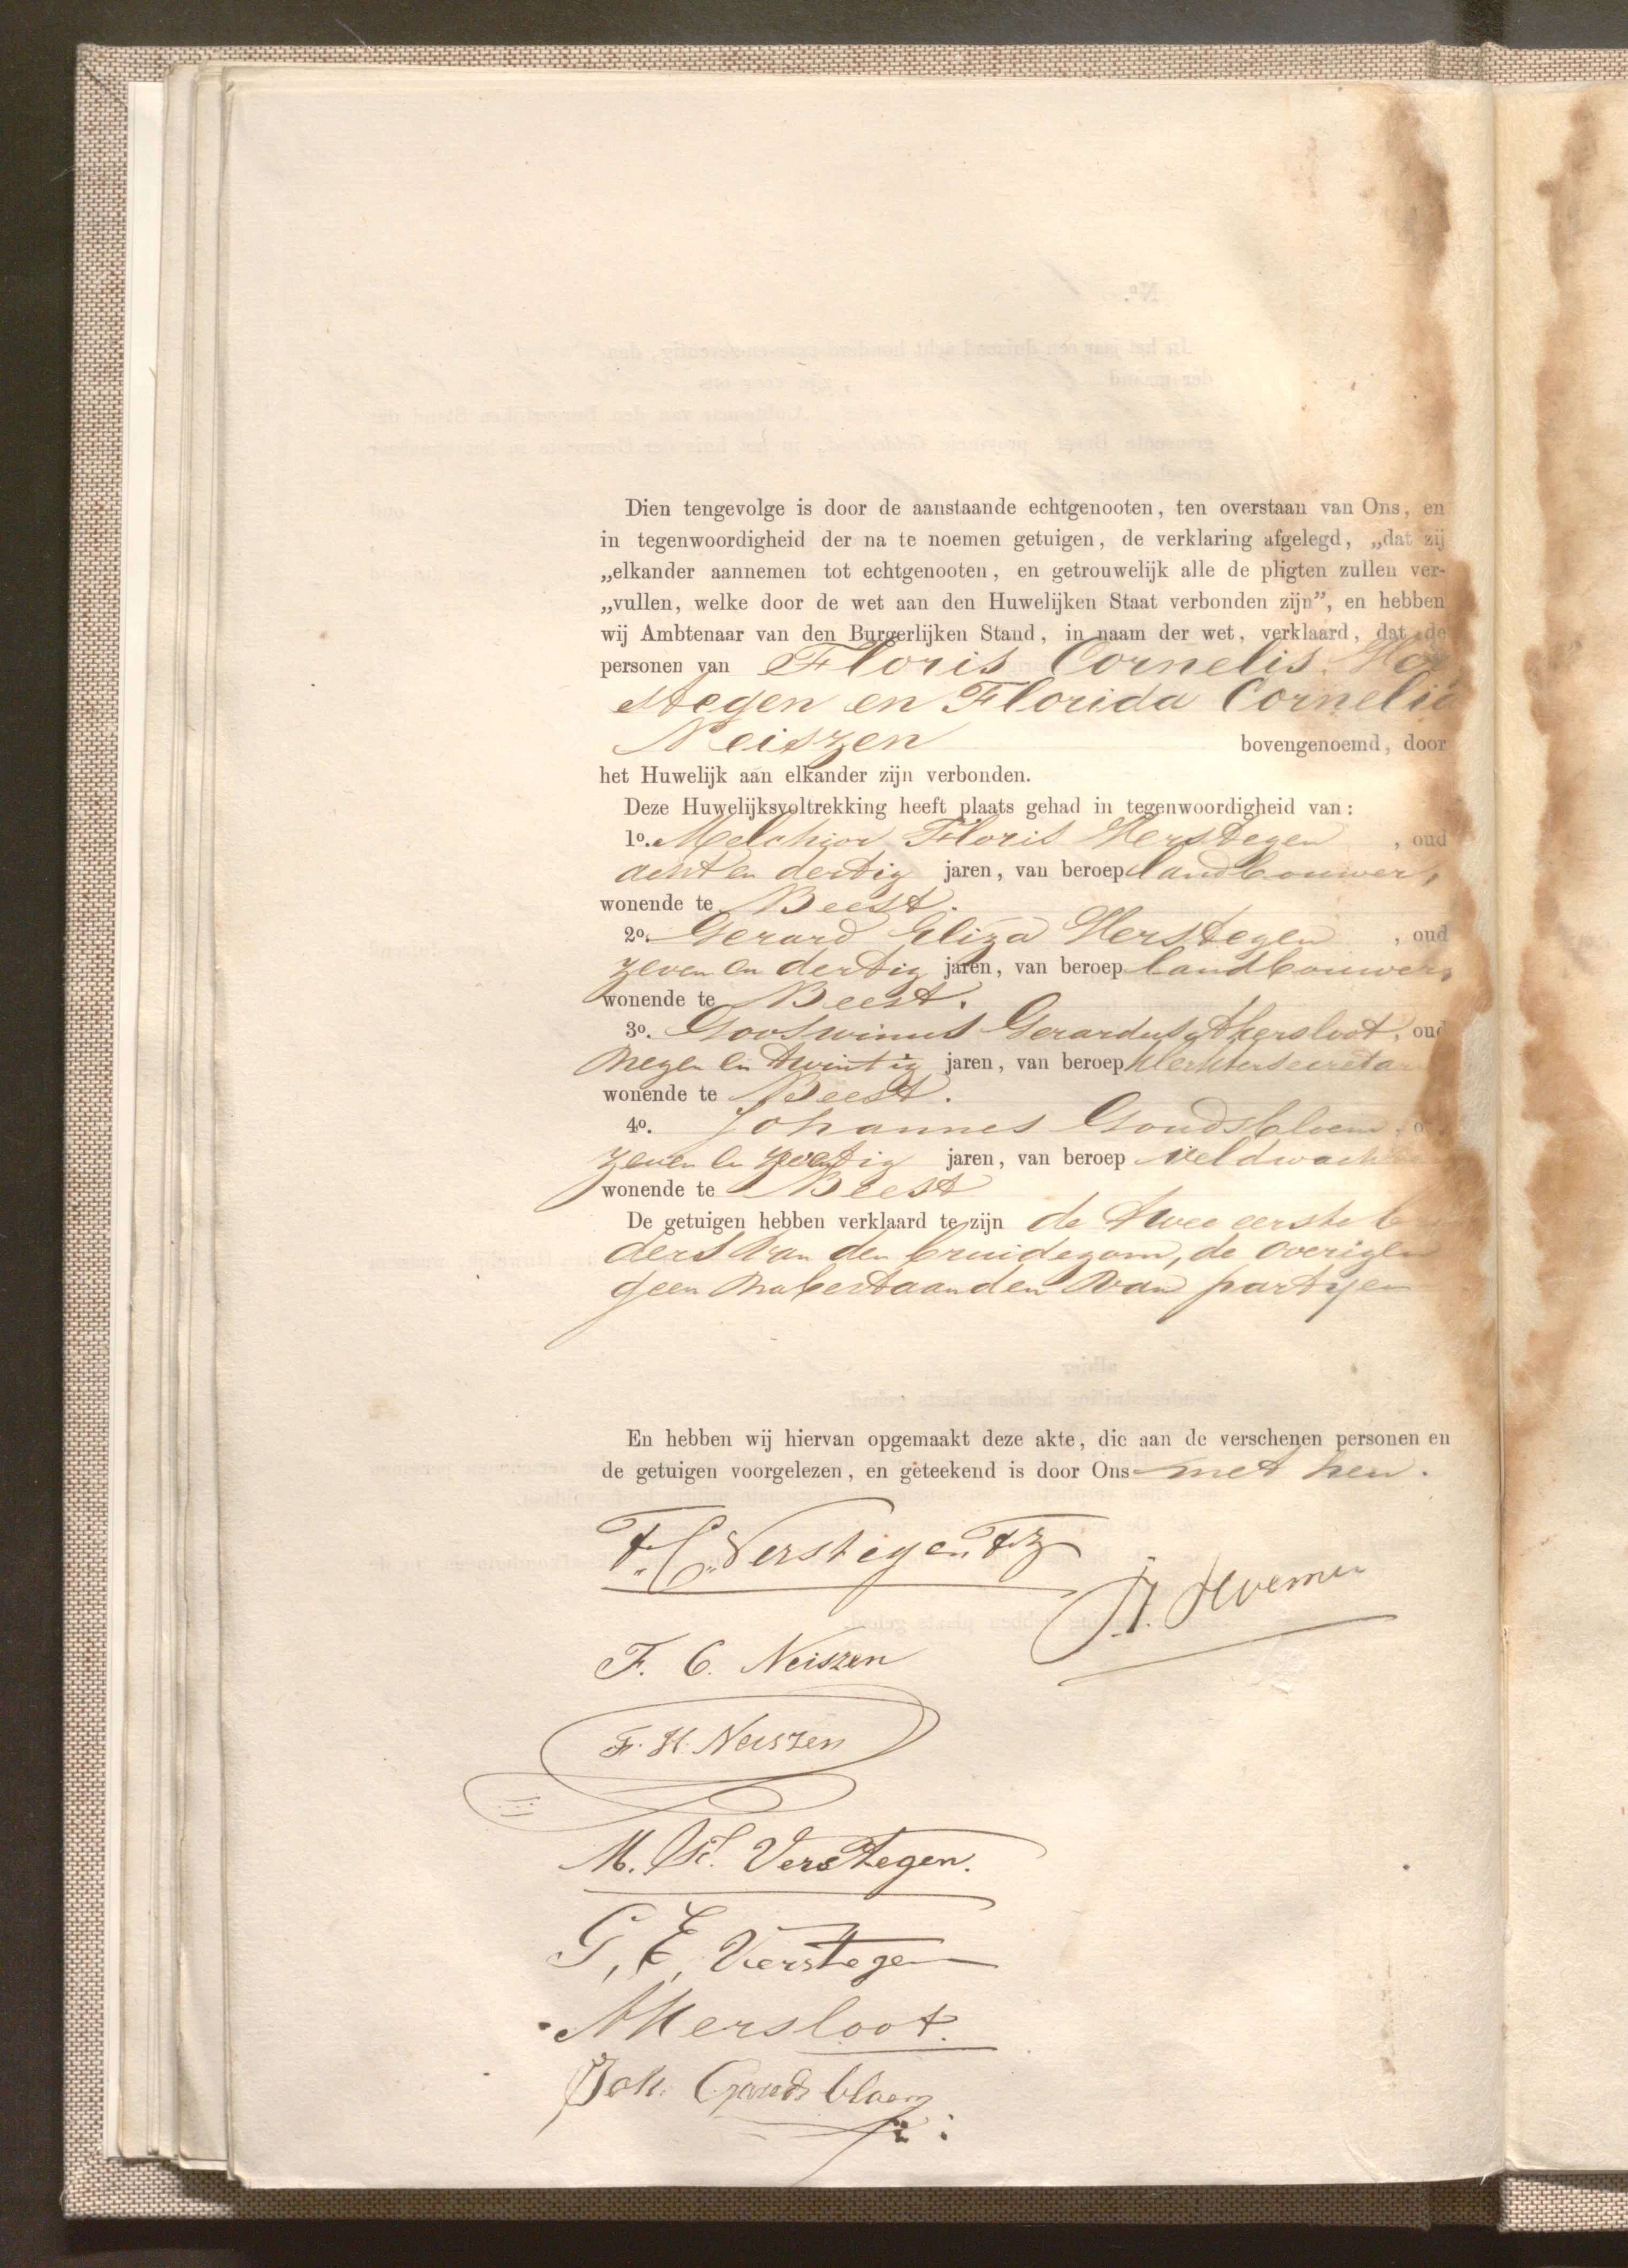 Dien tengevolge is door de aanstaande echtgenooten, ten overstaan van Ons, en
in tegenwoordigheid der na te noemen getuigen, de verklaring afgelegd, „dat zij
„elkander aannemen tot echtgenooten, en getrouwelijk alle de pligten zullen ver-
„vullen, welke door de wet aan den Huwelijken Staat verbonden zijn”, en hebben
wij Ambtenaar van den Burgerlijken Stand, in naam der wet, verklaard, dat de
personen van Floris Cornelis Ver
stegen en Florida Cornelia
Neiszen bovengenoemd, door
het Huwelijk aan elkander zijn verbonden.
Deze Huwelijksvoltrekking heeft plaats gehad in tegenwoordigheid van:
1o. Melchior Floris Verstegen, oud
acht en dertig jaren, van beroep landbouwer,
wonende te Beest.
2o. Gerard Eliza Verstegen, oud
zeven en dertig jaren, van beroep landbouwer,
wonende te Beest.
3o. Gooswinus Gerardus Akersloot, oud
negen en twintig jaren, van beroep
wonende te Beest.
4o. Johannes Goudsbloem,
zeven en jaren, van beroep veldwachter
wonende te Beest
De getuigen hebben verklaard te zijn de twee eerste
ders van den bruidegom, de overigen
geen nabestaanden van partyen
En hebben wij hiervan opgemaakt deze akte, die aan de verschenen personen en
de getuigen voorgelezen, en geteekend is door Ons met hen.
F. C. Verstegen Fz
F. C. Neiszen
F. H. Neiszen
M. F. Verstegen.
G. E. Verstegen
Akersloot.
Joh. Goudsbloem